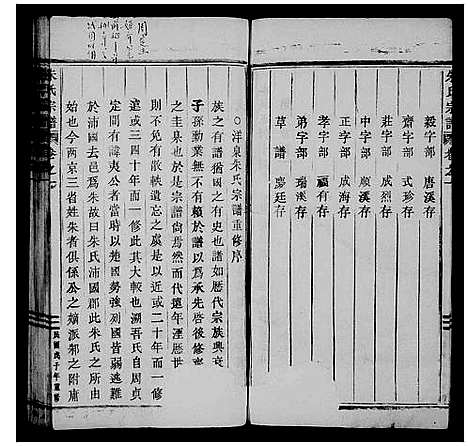 朱氏宗譜
毅字部　唐溪存
齋字部　式珍存
莊字部　成烈存
中字部　順溪存
正字部　成海存
孝字部　福有存
弟字部　瑞溪存
草譜　廷存
洋泉朱氏宗譜重修序
族之有譜猶國之有史也諸如歷代宗族興衰
子孫勳業無不有賴於譜以爲承先啓後修齊
之圭臬也於是宗譜尙焉然而代遠年湮歷世
旣久不免有散軼遺忘之虞是以近或二十年而一修
或三四十年而一修此其大較也溯吾氏自周貞
定間有諱夷公者當時以楚國勢強列國皆弱逃難
於沛國去邑爲朱故曰朱氏沛國郡此朱氏之所由
始也今兩京三省姓朱者俱係公之嫡派邾之附庸
朱氏宗譜
民國丙子年重修